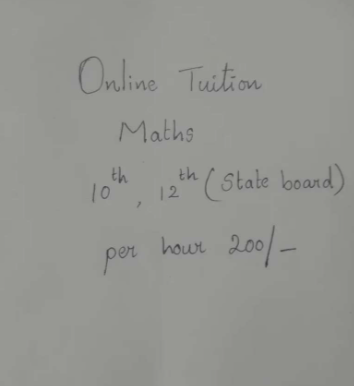 Online Tuition
Maths
10th, 12th (State board)
per hour 200/-